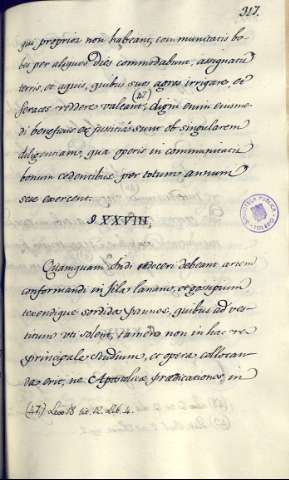 317.
qui proprios non habeant, communitatis bo-
bes per aliquos dies commodabunt, assignatis
terris, et aquis, quibus suos agros irrigare, et
feraces reddere valeant, (47) digni enim eiusmo-
di beneficio ex justitia sunt ob singularem
diligentiam, qua operis in communitatis
bonum cedentibus per totum annum
sese exercent.
§ XXVIII.
Quamquam Indi edoceri debeant artem
conformandi in fila lanam, et gosypium
texendique sordidos pannos, quibus ad ves-
titum uti solent, tamen non in hac re
principale studium, et opera collocan-
da erit, ne Apostolicae praedicationes, in
(47) Lex 18 tit. 12. Lib. 4.